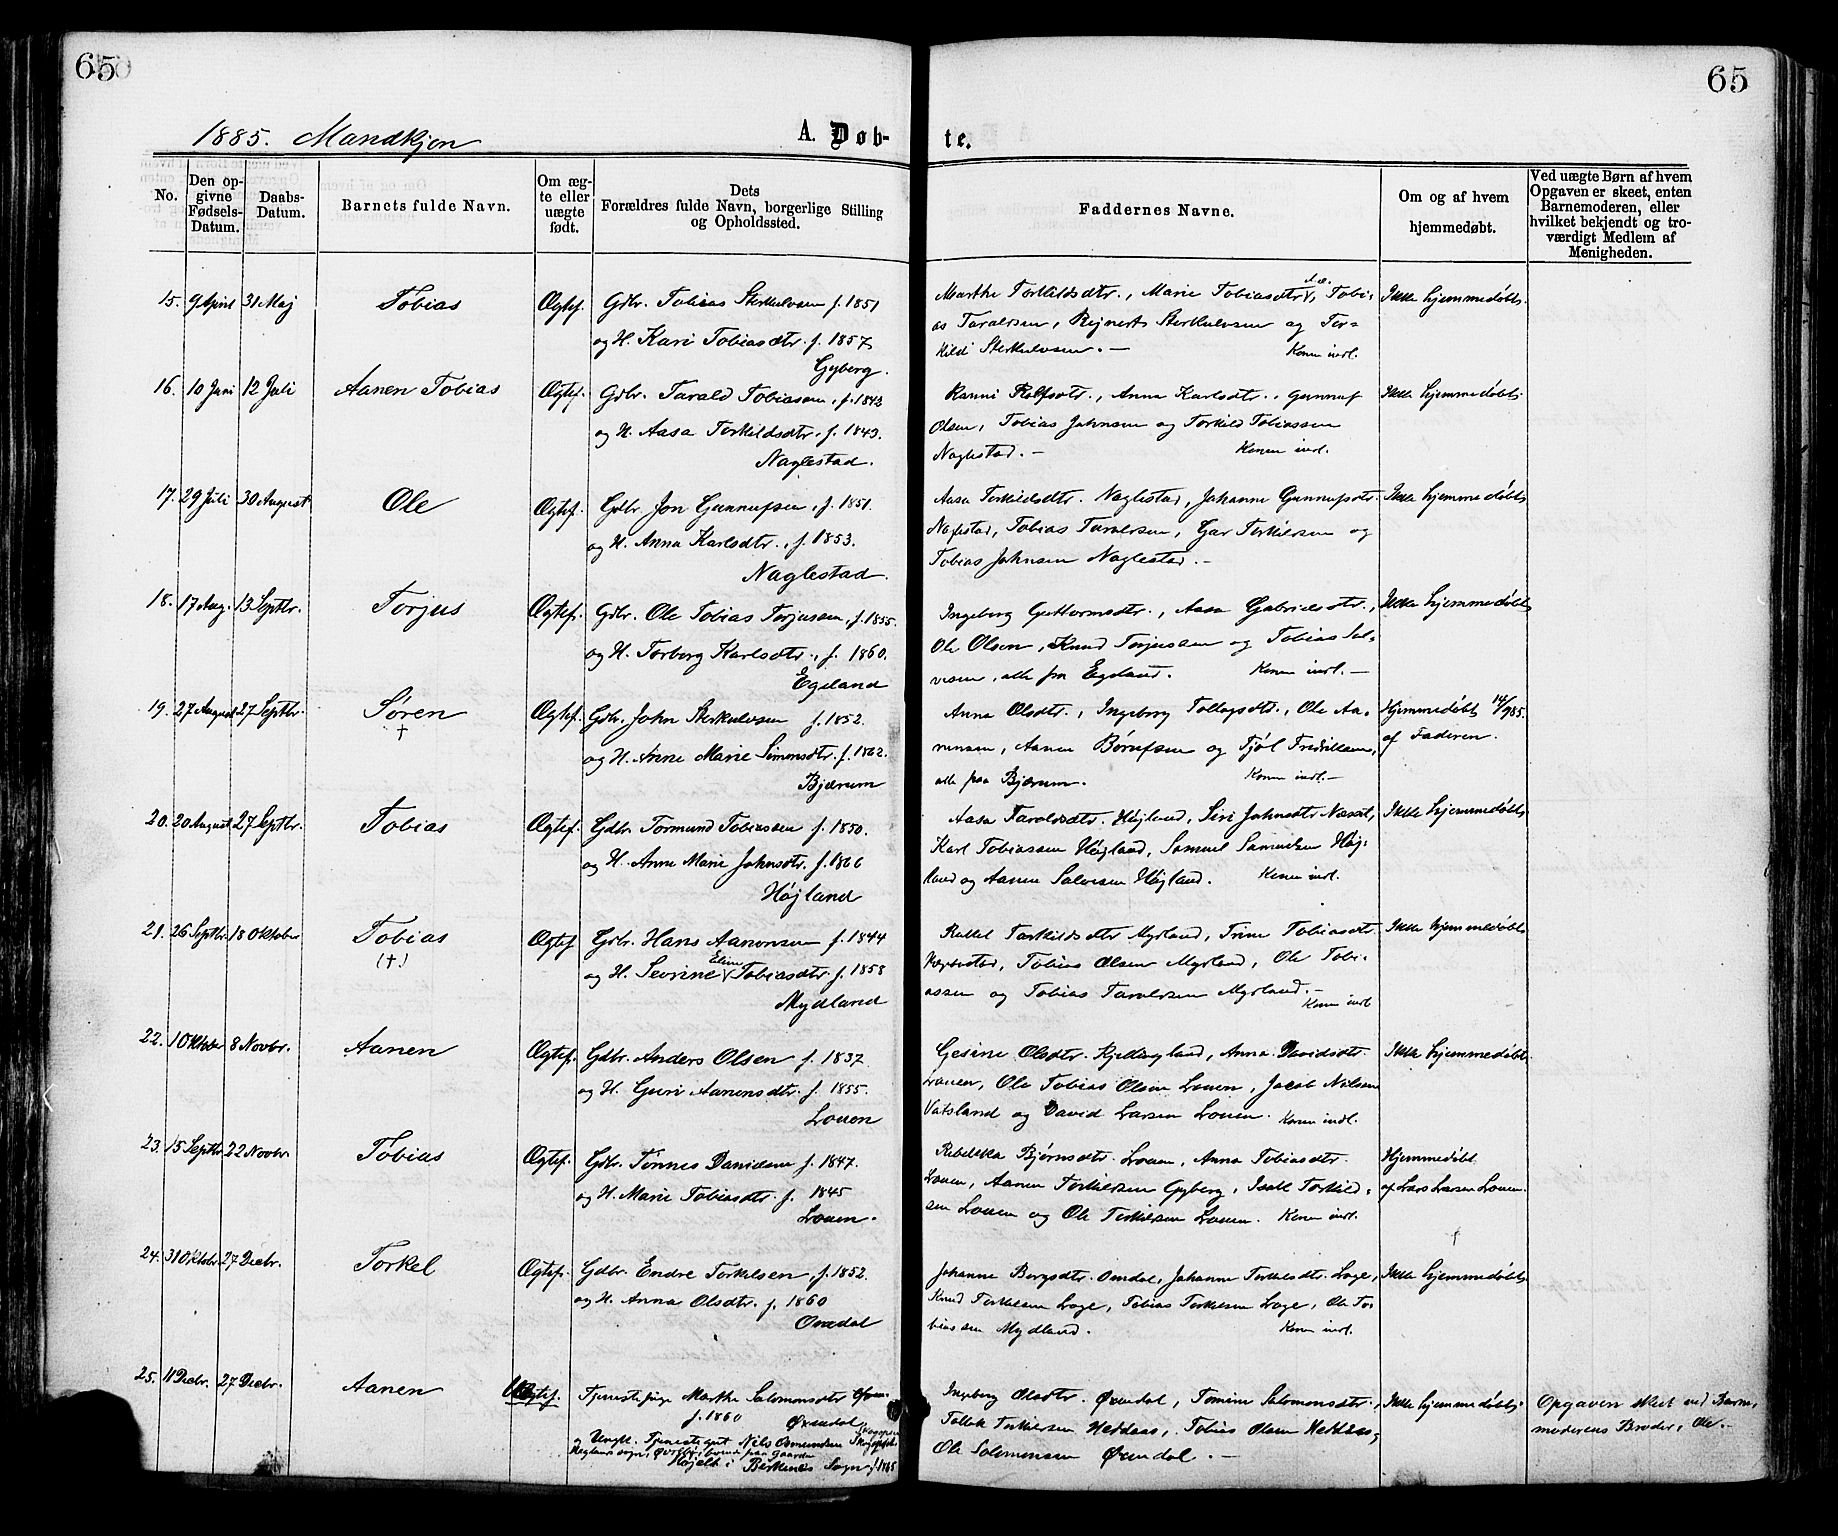 65
65
1885. Mandkjøn
A. Døb-
te.
No.
Den op-
givne
Fødsels-
Datum.
Daabs-
Datum.
Barnets fulde Navn.
Om æg-
te eller
uægte
født.
Dets
Forældres fulde Navn, borgerlige Stilling
og Opholdssted.
Faddernes Navne.
Om og af hvem
hjemmedøbt.
Ved uægte Børn af hvem
Opgaven er skeet, enten
Barnemoderen, eller
hvilket bekjendt og tro-
værdigt Medlem af
Menigheden.
15. 9 April 31 Maj Tobias Ægtef. Gdbr. Tobias Sterkulvsen f. 1851
og H. Kari Tobiasdtr. f. 1857
Gyberg.
Marthe Torkildsdtr., Marie Tobiasdtr, Tobi-
as Taraldsen, Rejnert Sterkulvsen og Tor-
kild Sterkulvsen. — Konen indl.
Ikke hjemmedøbt.
16. 10 Juni 12 Juli Aanen Tobias Ægtef. Gdbr. Tarald Tobiassen, f. 1842
og H. Aasa Torkildsdtr. f. 1843.
Naglestad.
Ranni Rolfsdtr., Anna Karlsdtr., Gunnuf
Olsen, Tobias Johnsen og Torkild Tobiassen
Naglestad. — Konen indl.
Ikke hjemmedøbt.
17. 29 Juli 30 August Ole Ægtef. Gdbr. Jon Gunnufsen, f. 1851.
og H. Anna Karlsdtr., f. 1853.
Naglestad.
Aasa Torkildsdtr. Naglestad, Johanne Gunnufsdtr.
Naglestad, Tobias Taraldsen, Torkildsen og
Tobias Johnsen Naglestad. —
Ikke hjemmedøbt.
18. 17 Aug. 13 Septbr. Torjus Ægtef. Gdbr. Ole Tobias Torjussen, f. 1855.
og H. Torborg Karlsdtr., f. 1860.
Egeland
Ingeborg Guttormsdtr., Aasa Gabrielsdtr.,
Ole Olsen, Knud Torjussen og Tobias Sal-
vesen, alle fra Egeland. Konen indl. —
Ikke hjemmedøbt
19. 27 August 27 Septbr. Søren † Ægtef. Gdbr. John Sterkulvsen f. 1852.
og H. Anne Marie Simonsdtr. f. 1862.
Bjærum
Anna Olsdtr., Ingeborg Tollagsdtr., Ole Aa-
nensen, Aanen Børufsen og Tjøl Fredriksen,
alle paa Bjærum. Konen indl. —
Hjemmedøbt 14/9 85.
af Faderen.
20. 20 August 27 Septbr. Tobias Ægtef. Gdbr. Tormund Tobiassen f. 1850.
og H. Anne Marie Johnsdtr. f. 1866
Højland
Aasa Taraldsdtr. Højland, Siri Johnsdtr
Karl Tobiassen Højland, Samuel Samuelsen Høj-
land og Aanen Salvesen Højland. Konen indl.
Ikke hjemmedøbt.
21. 26 Septbr. 18 Oktober Tobias (†) Ægtef. Gdbr. Hans Aanonsen f. 1844
og H. Sevrine Eline Tobiasdtr. f. 1858
Mydland
Rakkel Torkildsdtr Mydland, Trine Tobiasdtr.
Tobias Olsen Mydland, Ole Tobi-
assen og Tobias Taraldsen Mydland. —
Konen indl
Ikke hjemmedøbt
22. 1 Oktober 8 Novbr. Aanen Ægtef. Gdbr. Anders Olsen f. 1837
og H. Guri Aanensdtr. f. 1855.
Louen
Gesine Olsdtr. Kjellingland, Anna Davidsdtr.
Louen, Ole Tobias Olsen Louen, Jacob Nilsen
Vatsland og David Larsen Louen. Konen indl.
Ikke hjemmedøbt.
23. 15 Septbr 22 Novbr. Tobias Ægtef. Gdbr. Tønnes Danielsen f. 1847.
og H. Marie Tobiasdtr. f. 1845
Louen.
Rebekka Bjørnsdtr. Louen, Anna Tobiasdtr.
Louen, Aanen Torkildsen Gyberg, Isak Torkild-
sen Louen og Ole Torkildsen Louen. Konen indl.
Hjemmedøbt
af Lars Larsen Louen.
†
24. 31 Oktobr. 27 Decbr. Torkel Ægtef. Gdbr. Endre Torkelsen, f. 1852.
og H. Anna Olsdtr. f. 1860
Omdal
Johanne Bergsdtr. Omdal, Johanne Torkelsdtr. Loge,
Knud Torkelsen Loge, Tobias Torkelsen Loge, Ole To-
biassen Mydland. Konen indl.
Ikke hjemmedøbt.
25. 11 Decbr. 27 Decbr. Aanen Uægtef. Tjenestepige Marthe Salomonsdtr
f. 1860 Øxendal
og Ungk. Tjenestegut Nils Osmundsen
Højelt i Birkenes Sogn f. 1865
Ingeborg Olsdtr. Øxendal, Tomine Salomonsdtr.,
Tollak Torkelsen Heddaas, Tobias Olsen Heddaas,
Ole Salomonsen Øxendal. —
Ikke hjemmedøbt.
Opgaven skeet ved Barne-
moderens Broder, Ole.